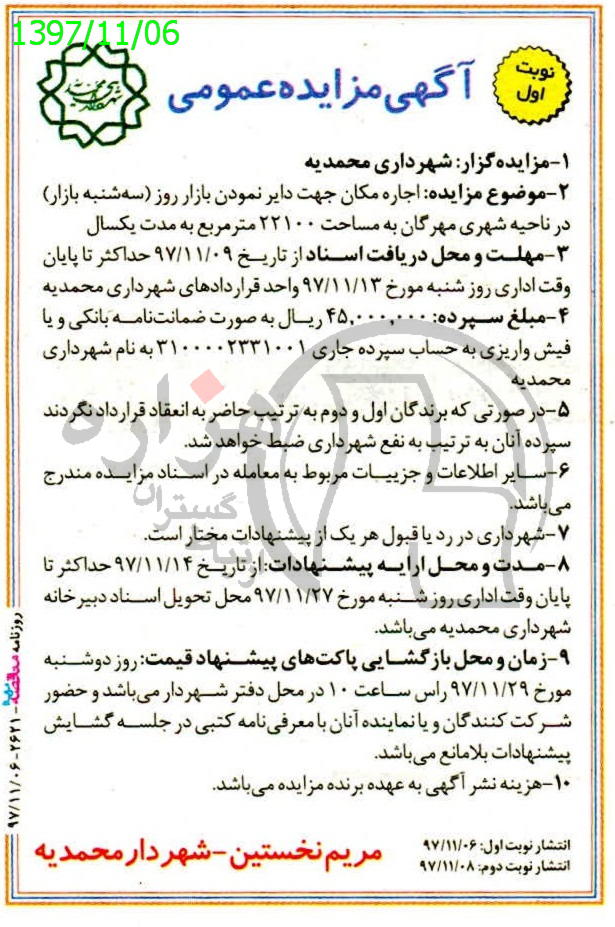 1397/11/06
نوبت اول
آگهی مزایده عمومی
۱-مزایده‌گزار: شهرداری محمدیه
۲-موضوع مزایده: اجاره مکان جهت دایر نمودن بازار روز (سه‌شنبه بازار)
در ناحیه شهری مهرگان به مساحت ۲۲۱۰۰ مترمربع به مدت یکسال
۳-مهلت و محل دریافت اسناد از تاریخ ۹۷/۱۱/۰۹ حداکثر تا پایان
وقت اداری روز شنبه مورخ ۹۷/۱۱/۱۳ واحد قراردادهای شهرداری محمدیه
۴-مبلغ سپرده: ۴۵,۰۰۰,۰۰۰ ریال به صورت ضمانت‌نامه بانکی و یا
فیش واریزی به حساب سپرده جاری ۳۱۰۰۰۰۲۳۳۱۰۰۱ به نام شهرداری
محمدیه
۵-در صورتی که برندگان اول و دوم به ترتیب حاضر به انعقاد قرارداد نگردند
سپرده آنان به ترتیب به نفع شهرداری ضبط خواهد شد.
۶-سایر اطلاعات و جزییات مربوط به معامله در اسناد مزایده مندرج
می‌باشد.
۷-شهرداری در رد یا قبول هر یک از پیشنهادات مختار است.
۸-مدت و محل ارایه پیشنهادات: از تاریخ ۹۷/۱۱/۱۴ حداکثر تا
پایان وقت اداری روز شنبه مورخ ۹۷/۱۱/۲۷ محل تحویل اسناد دبیرخانه
شهرداری محمدیه می‌باشد.
۹-زمان و محل بازگشایی پاکت‌های پیشنهاد قیمت: روز دوشنبه
مورخ ۹۷/۱۱/۲۹ راس ساعت ۱۰ در محل دفتر شهردار می‌باشد و حضور
شرکت کنندگان و یا نماینده آنان با معرفی‌نامه کتبی در جلسه گشایش
پیشنهادات بلامانع می‌باشد.
۱۰-هزینه نشر آگهی به عهده برنده مزایده می‌باشد.
انتشار نوبت اول: ۹۷/۱۱/۰۶
انتشار نوبت دوم: ۹۷/۱۱/۰۸
مریم نخستین-شهردار محمدیه
روزنامه مناقصه - ۲۶۲۱ - ۹۷/۱۱/۰۶
هزاره
گستران